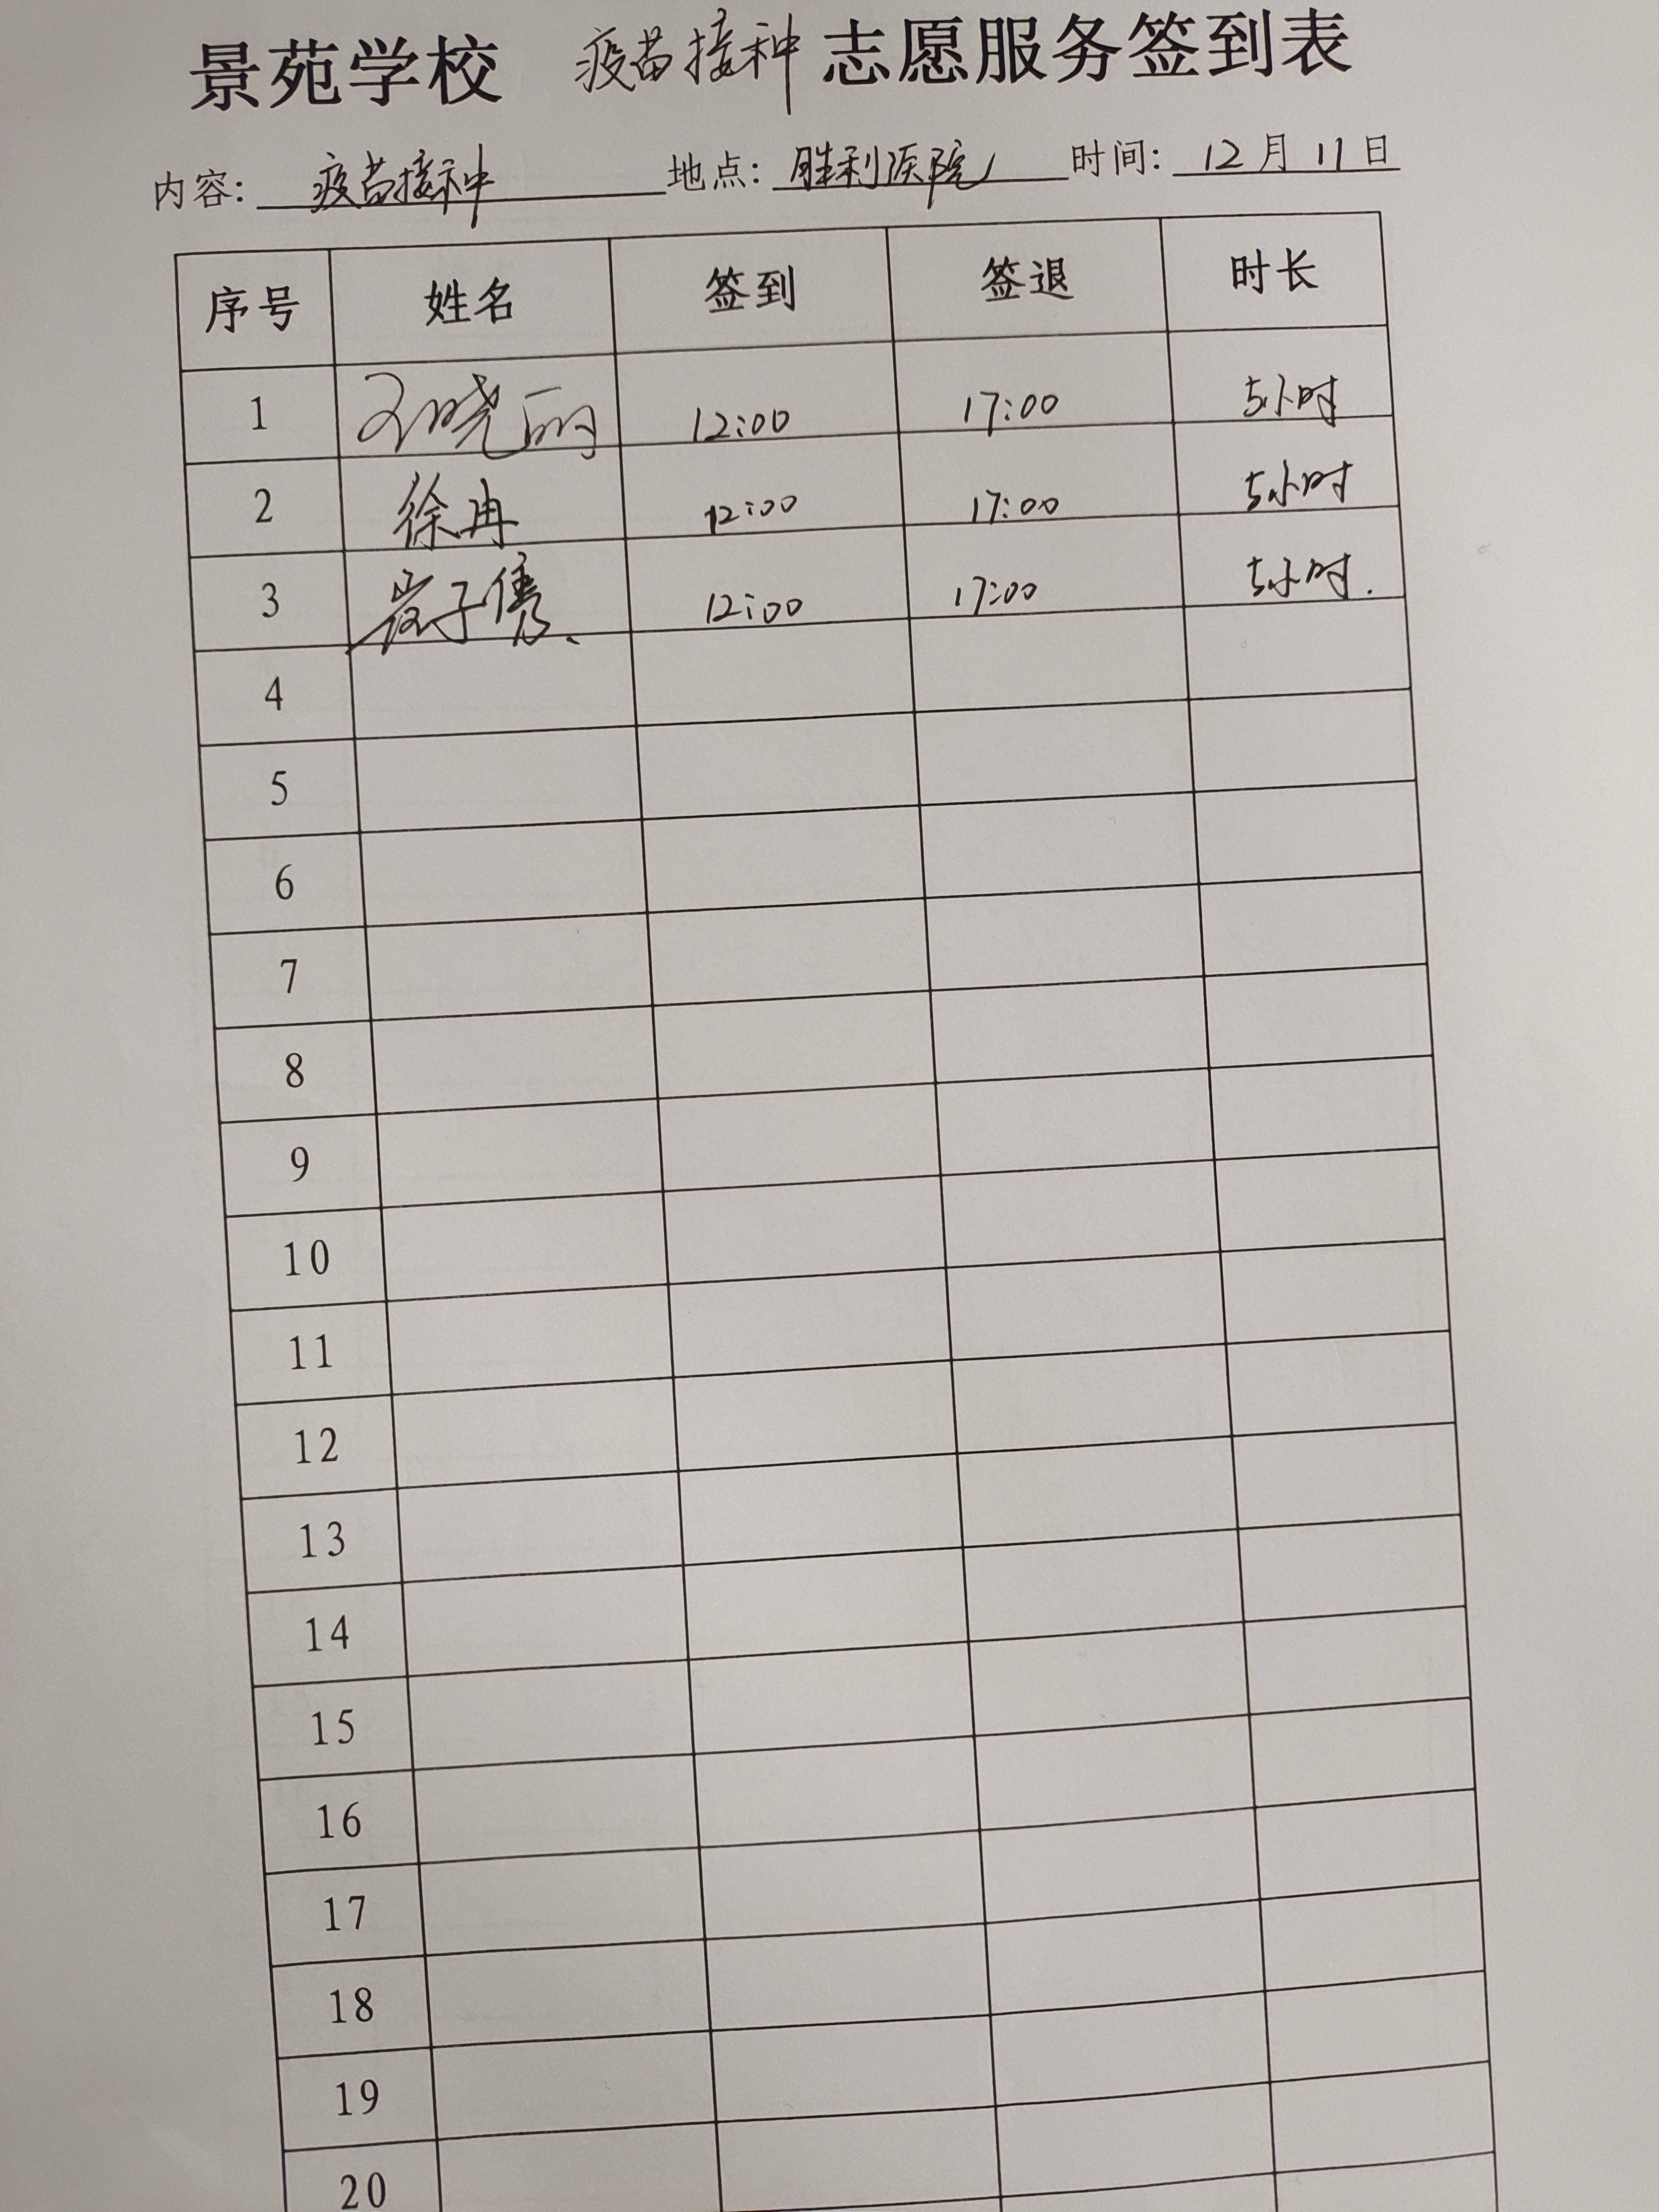 景苑学校 疫苗接种 志愿服务签到表
内容: 疫苗接种 地点: 胜利医院 时间: 12月11日
序号 姓名 签到 签退 时长
1 晓丽 12:00 17:00 5小时
2 徐冉 12:00 17:00 5小时
3 崔子隽 12:00 17:00 5小时.
4
5
6
7
8
9
10
11
12
13
14
15
16
17
18
19
20